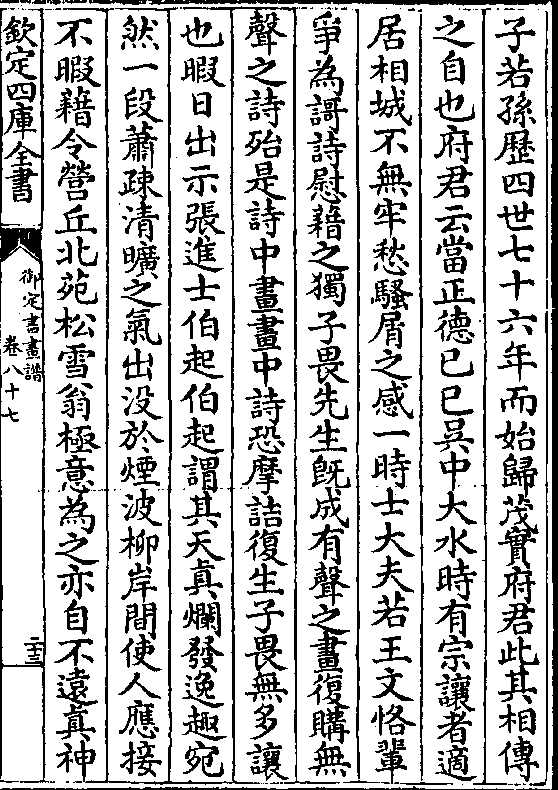 子若孫歴四世七十六年而始歸茂實府君此其相傳
之自也府君云當正德已巳吳中大水時有宗讓者適
居相城不無牢愁騷屑之感一時士大夫若王文恪輩
爭為謌詩慰藉之獨子畏先生既成有聲之畫復購無
聲之詩殆是詩中畫畫中詩恐摩詰復生子畏無多讓
也暇日出示張進士伯起伯起謂其天真爛發逸趣宛
然一段蕭疎清曠之氣出没於煙波柳岸間使人應接
不暇藉令營丘北苑松雪翁極意為之亦自不遠真神
欽定四庫全書
御定書畫譜
卷八十七
二十三